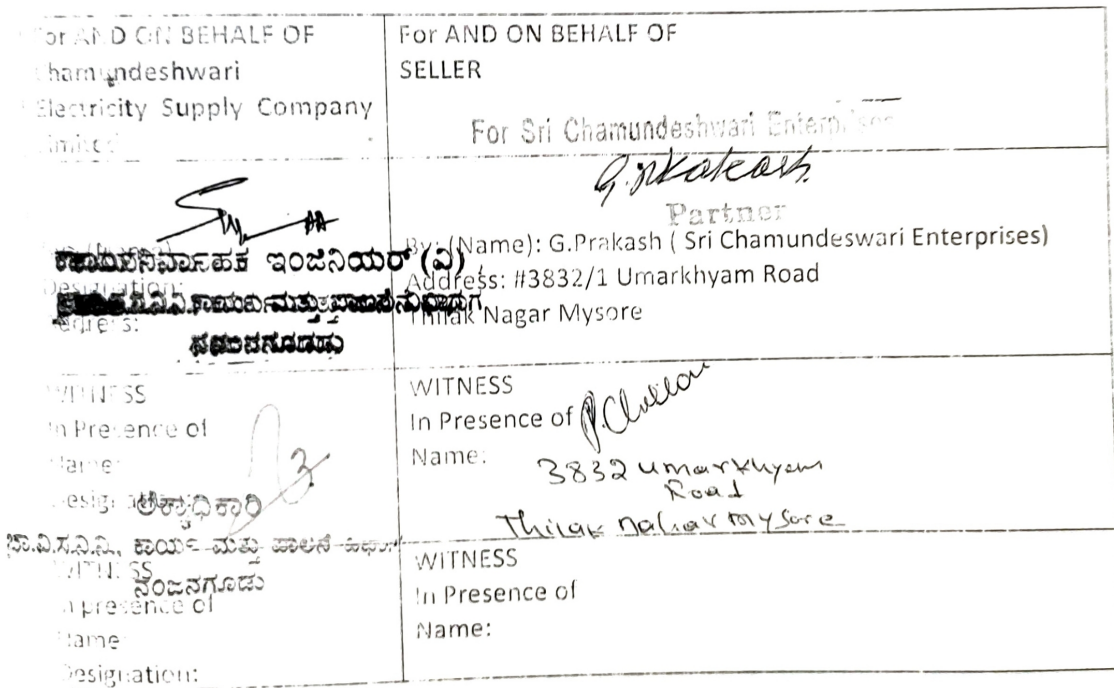 For AND ON BEHALF OF
Chamundeshwari
Electricity Supply Company
Limited
For AND ON BEHALF OF
SELLER
For Sri Chamundeshwari Enterprises
G. Prakash
Partner
ಕಾರ್ಯನಿರ್ವಾಹಕ ಇಂಜಿನಿಯರ್ (ವಿ)
Designation:
Address:
By: (Name): G.Prakash ( Sri Chamundeswari Enterprises)
Address: #3832/1 Umarkhyam Road
Thilak Nagar Mysore
WITNESS
In Presence of
Name:
Designation:
ಲೆಕ್ಕಾಧಿಕಾರಿ
ಚಾ.ವಿ.ಸ.ನಿ.ನಿ., ಕಾರ್ಯ ಮತ್ತು ಪಾಲನೆ ವಿಭಾಗ
ನಂಜನಗೂಡು
WITNESS
In Presence of
Name:
3832 Umarkhyam
Road
Thilak Nahar Mysore
WITNESS
In presence of
Name:
Designation:
WITNESS
In Presence of
Name: